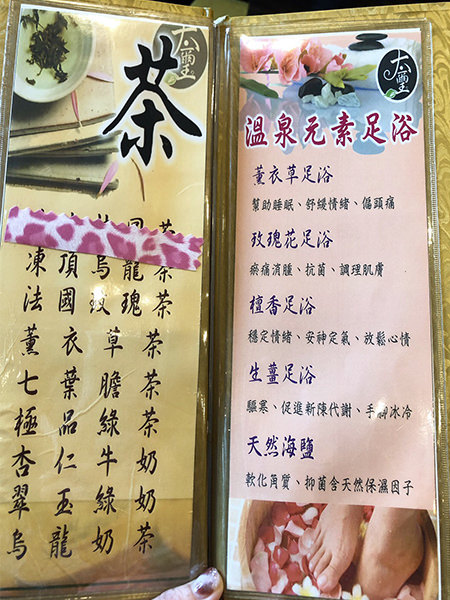 茶
茶
凍頂烏龍茶
法國玫瑰茶
薰衣草茶
七葉膽茶
極品綠茶
杏仁牛奶
翠玉綠奶
烏龍奶茶
溫泉元素足浴
薰衣草足浴
幫助睡眠、舒緩情緒、偏頭痛
玫瑰花足浴
瘀痛消腫、抗菌、調理肌膚
檀香足浴
穩定情緒、安神定氣、放鬆心情
生薑足浴
驅寒、促進新陳代謝、手腳冰冷
天然海鹽
軟化角質、抑菌含天然保濕因子